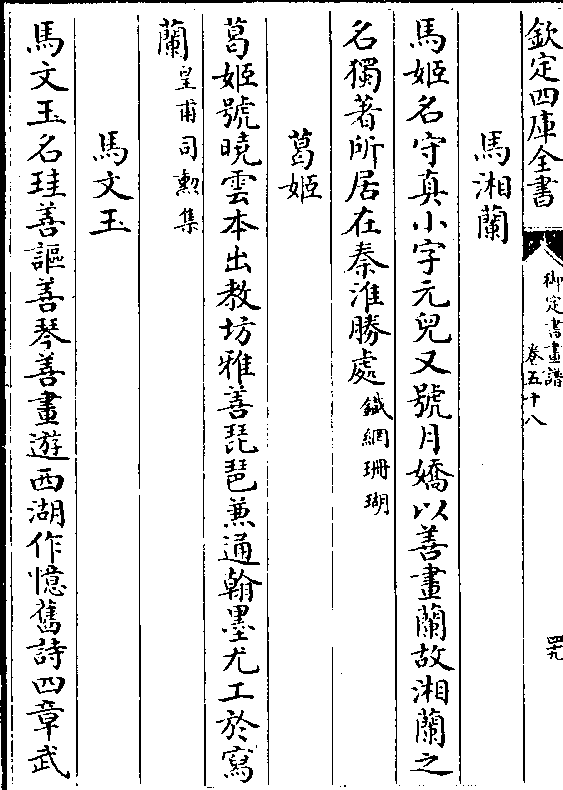 欽定四庫全書
御定書畫譜
卷五十八
四九
馬湘蘭
馬姬名守真小字元兒又號月嬌以善畫蘭故湘蘭之
名獨著所居在秦淮勝處鐵網珊瑚
葛姬
葛姬號曉雲本出教坊雅善琵琶兼通翰墨尤工於寫
蘭皇甫司勲集
馬文玉
馬文玉名珪善謳善琴善畫遊西湖作憶舊詩四章武